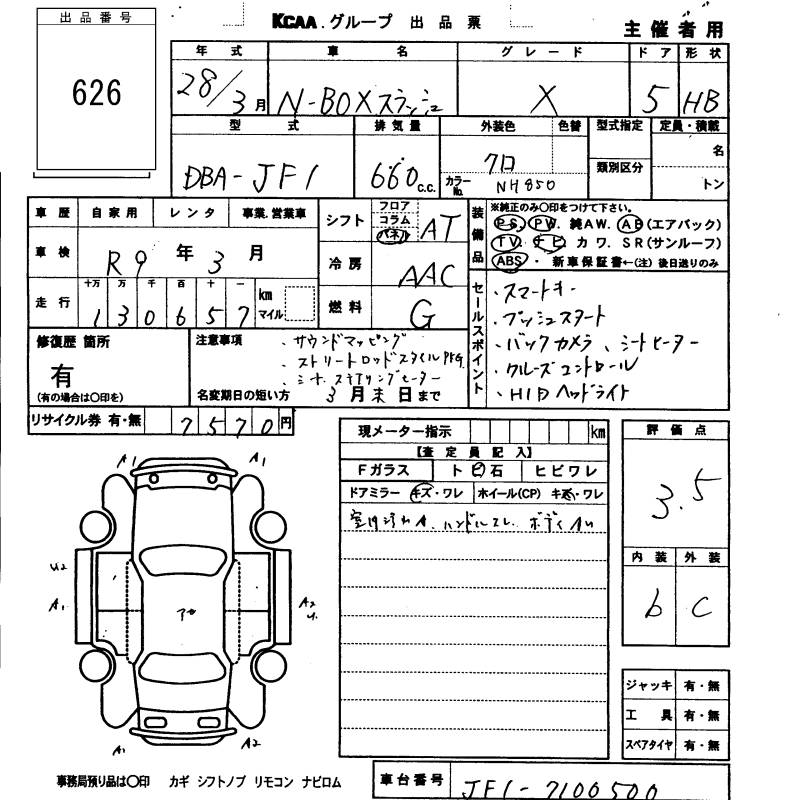 出品番号
KCAA.グループ 出品票
主催者用
626
年式 車名 グレード ドア 形状
28/3月 N-BOXスラッシュ X 5 HB
型式 排気量 外装色 色替 型式指定 定員・積載
DBA-JF1 660c.c. クロ
カラーNo. NH850
類別区分
名
トン
車歴 自家用 レンタ 事業.営業車
車検 R9年3月
走行 十万 万 千 百 十 一
130657 km マイル
シフト フロア コラム パネル AT
冷房 AAC
燃料 G
装備品
※純正のみ○印をつけて下さい。
PS. PW. 純AW. AB(エアバック)
TV. ナビ. カワ. SR(サンルーフ)
ABS・新車保証書←(注)後日送りのみ
セールスポイント
・スマートキー
・プッシュスタート
・バックカメラ、シートヒーター
・クルーズコントロール
・HIDヘッドライト
修復歴 箇所
有
(有の場合は○印を)
注意事項
・サウンドマッピング
・ストリートロッドスタイルPKG
名変期日の短い方 3月末日まで
リサイクル券 有・無 7570円
現メーター指示 km
【査定員記入】
Fガラス ト ビ 石 ヒビワレ
ドアミラー キズ・ワレ ホイール(CP) キズ・ワレ
ハンドルスレ ボディAu
評価点
3.5
内装 外装
b C
ジャッキ 有・無
工具 有・無
スペアタイヤ 有・無
A1 A1
U2
A1
A2
A1 A2
事務局預り品は○印 カギ シフトノブ リモコン ナビロム
車台番号 JF1-7100500